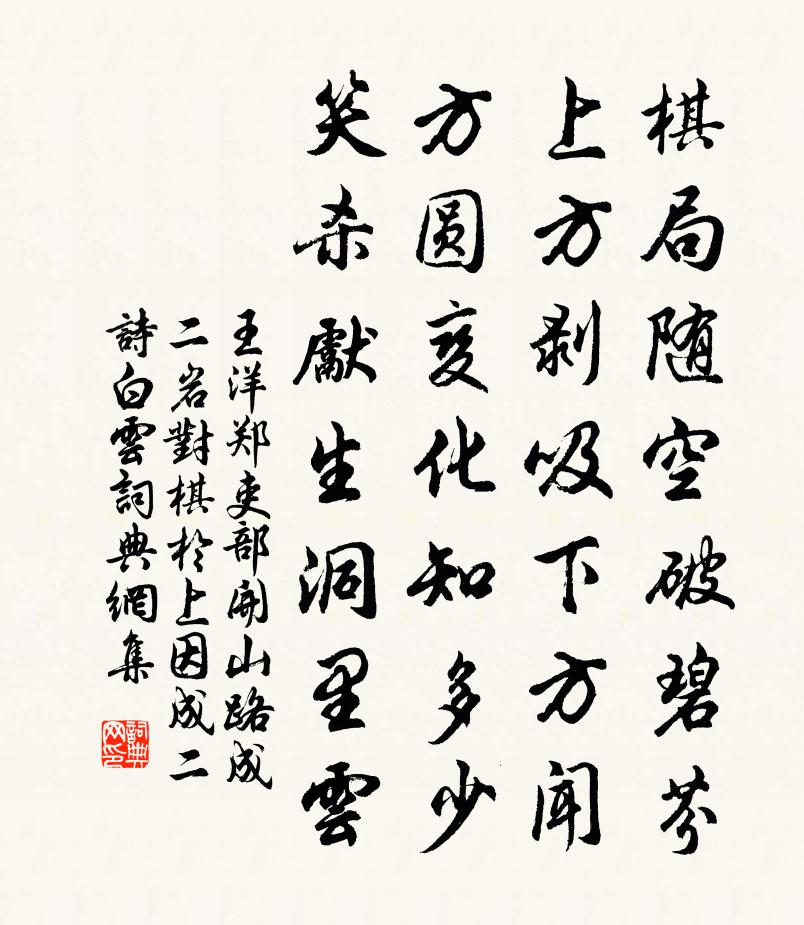 棋局随空破碧芬
上方剥吸下方闻
方圆变化知多少
笑杀獻生洞里雲
王洋郑吏部開山路成
二岩對棋於上因成二
詩白雲詞典網集
詞典网印